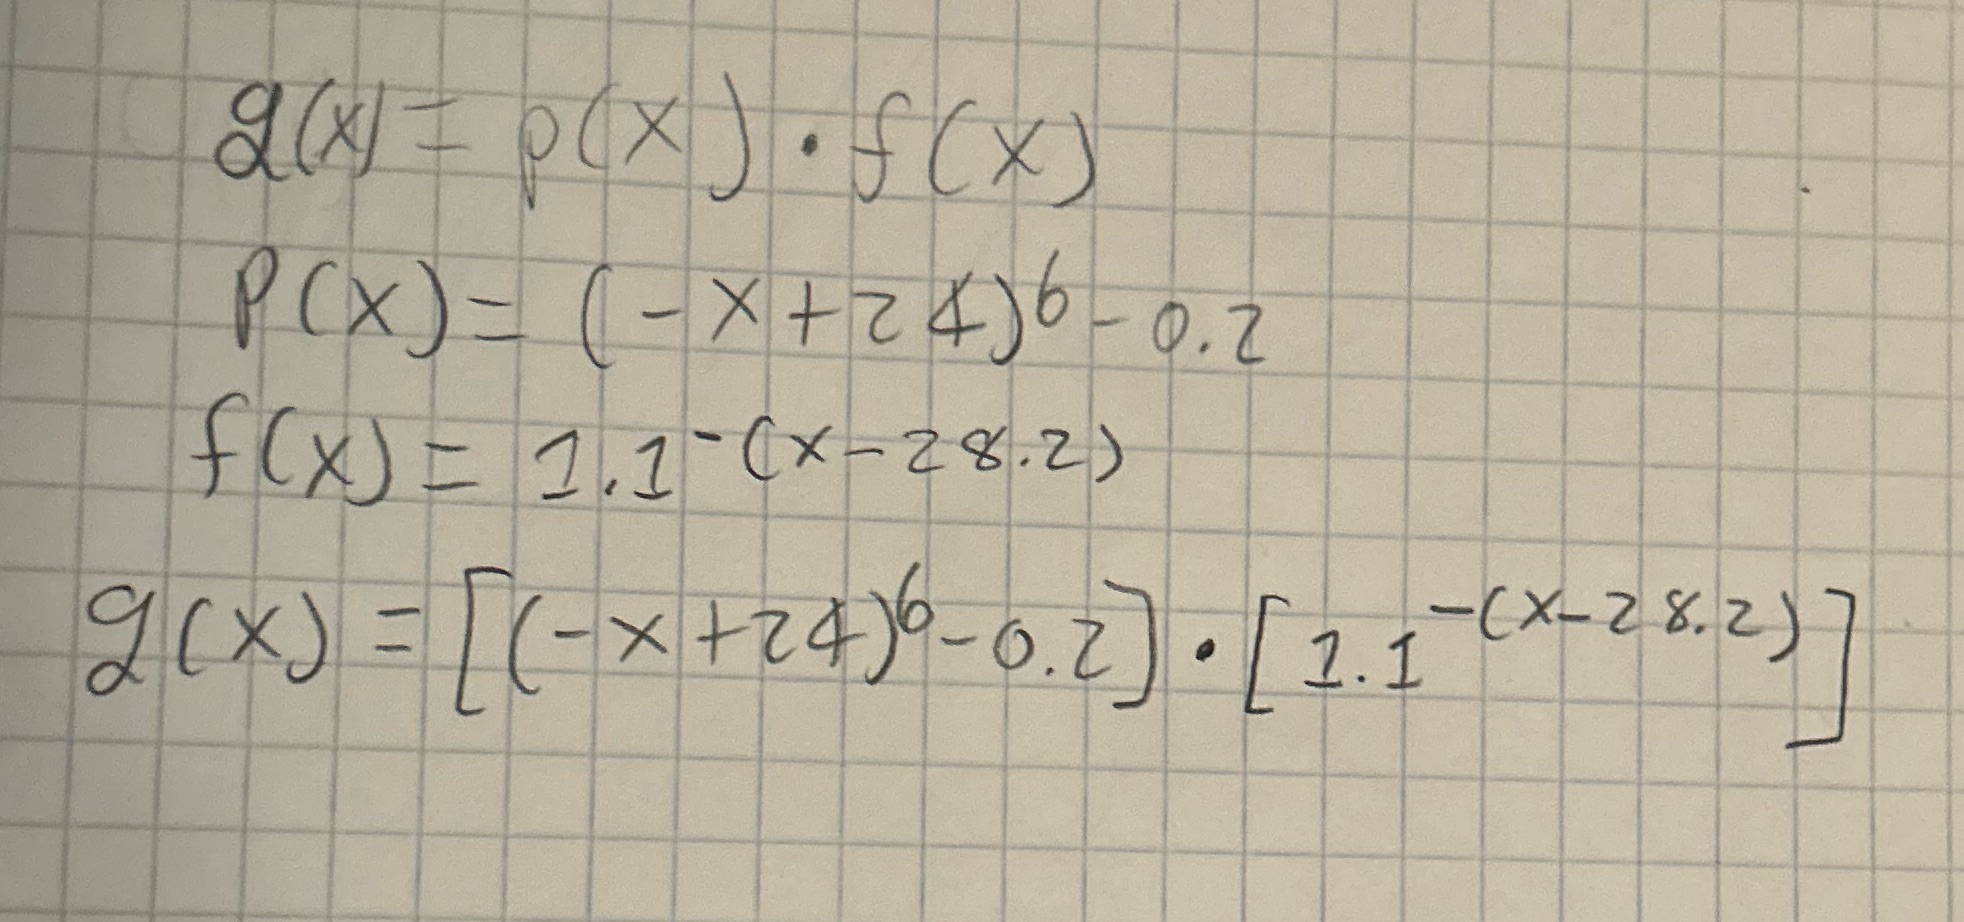 g(x) = p(x) · f(x)
P(x) = (-x+24)^6 - 0.2
f(x) = 1.1^-(x-28.2)
g(x) = [(-x+24)^6 - 0.2] · [1.1^-(x-28.2)]